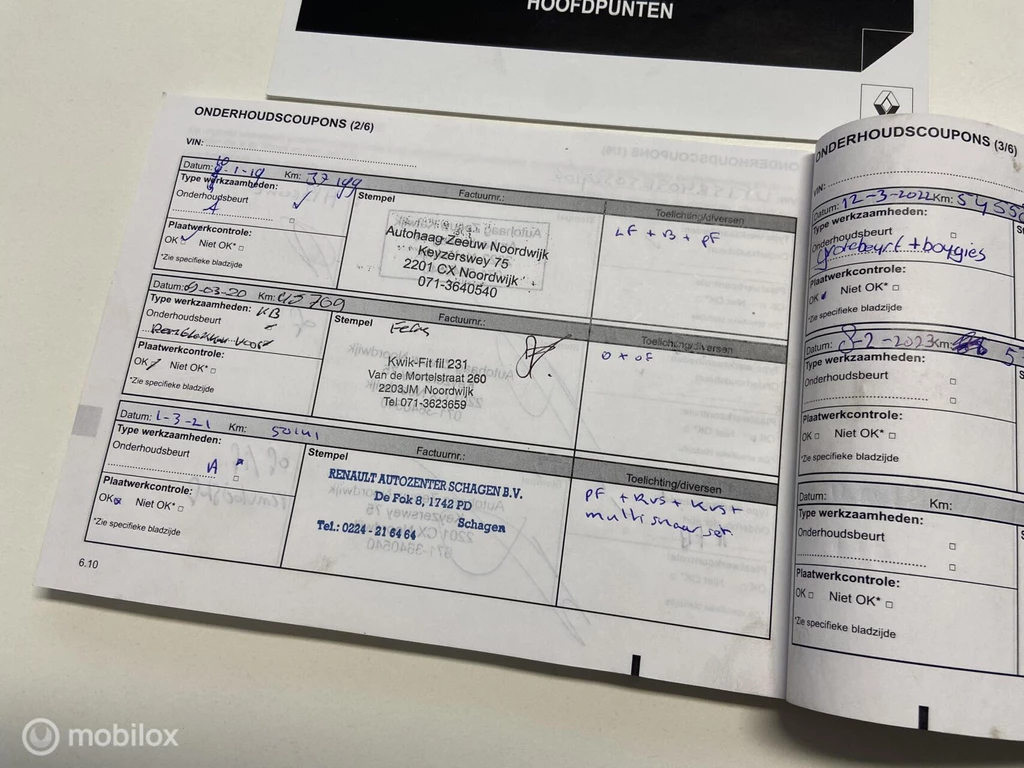 HOOFDPUNTEN
ONDERHOUDSCOUPONS (2/6)
VIN:
Datum: 8-1-19 Km: 37199
Type werkzaamheden:
Onderhoudsbeurt
A
Plaatwerkcontrole:
OK Niet OK*
*Zie specifieke bladzijde
Stempel Factuurnr.:
Autohaag Zeeuw Noordwijk
Keyzerswey 75
2201 CX Noordwijk
071-3640540
Toelichting/diversen
LF + B + PF
Datum: 9-03-20 Km: 45769
Type werkzaamheden: KB
Onderhoudsbeurt
Remblokken voor
Plaatwerkcontrole:
OK Niet OK*
*Zie specifieke bladzijde
Stempel Factuurnr.:
Kwik-Fit fil 231
Van de Mortelstraat 260
2203JM Noordwijk
Tel 071-3623659
Toelichting/diversen
O + OF
Datum: 1-3-21 Km:
Type werkzaamheden:
Onderhoudsbeurt
A
Plaatwerkcontrole:
OK Niet OK*
*Zie specifieke bladzijde
Stempel Factuurnr.:
RENAULT AUTOZENTER SCHAGEN B.V.
De Fok 8, 1742 PD
Schagen
Tel.: 0224 - 21 64 64
Toelichting/diversen
PF + RVS + KVS +
multisnaar set
6.10
ONDERHOUDSCOUPONS (3/6)
VIN:
Datum: 12-3-2022 Km:
Type werkzaamheden:
Onderhoudsbeurt
grotebeurt + bougies
Plaatwerkcontrole:
OK Niet OK*
*Zie specifieke bladzijde
Datum: 8-2-2023 Km:
Type werkzaamheden:
Onderhoudsbeurt
Plaatwerkcontrole:
OK Niet OK*
*Zie specifieke bladzijde
Datum: Km:
Type werkzaamheden:
Onderhoudsbeurt
Plaatwerkcontrole:
OK Niet OK*
*Zie specifieke bladzijde
mobilox